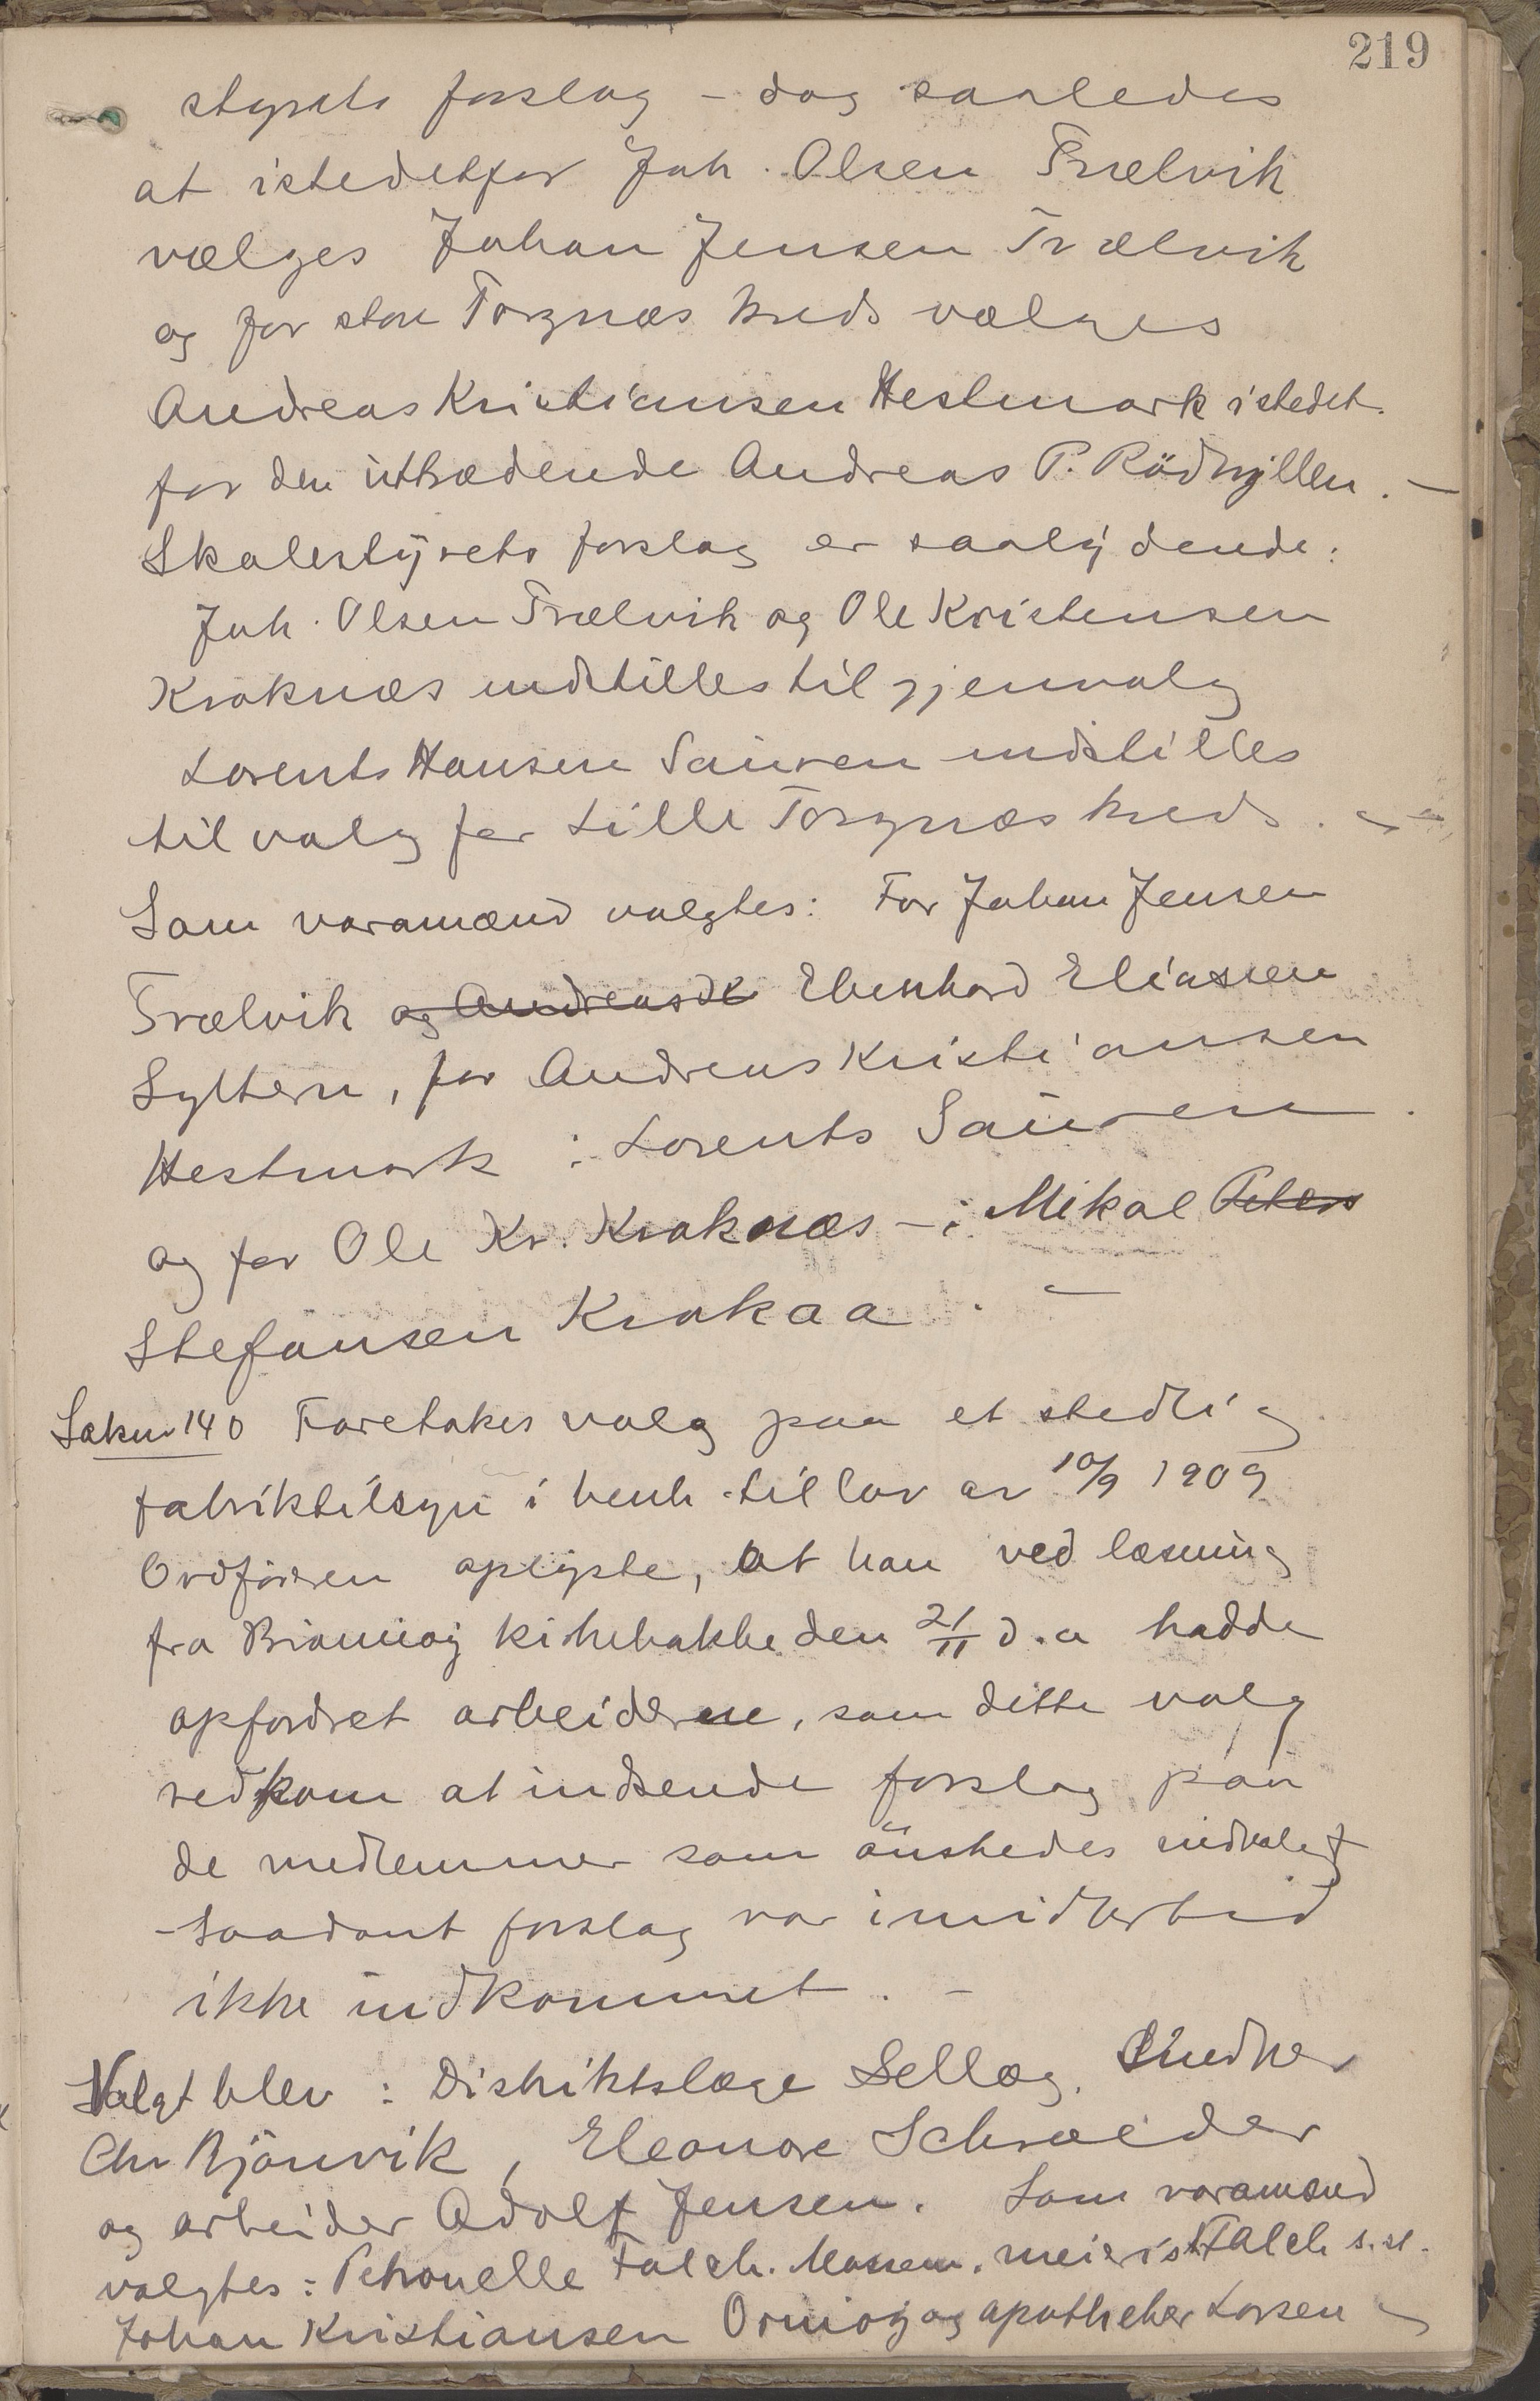 219
styrets forslag - dog saaledes
at istedetfor Joh. Olsen Trælvik
vælges Johan Jensen Trælvik
og for store Torgnæs kreds vælges
Andreas Kristiansen Hestmark istedet.
for den uttrædende Andreas P. Rödhyllen. —
Skolestyrets forslag er saalydende:
Joh. Olsen Trælvik og Ole Kristensen
Kroknæs indstilles til gjenvalg
Lorents Hansen Sauren indstilles
til valg for Lille Torgnæs kreds. —
Som varamænd valgtes: For Johan Jensen
Trælvik og Andreas Edenhard Eliassen
Syltern, for Andreas Kristiansen
Hestmark : Lorents Sauren.
og for Ole Kr. Kroknæs -: Mikal Peters
Stefansen Krokaa. —
Saknr 140 Foretakes valg paa et stedlig
fabriktilsyn i henh. til lov av 10/9 1909
Ordføreren oplyste, at han ved læsning
fra Brønnøy kirkebakke den 21/11 d.a hadde
opfordret arbeiderne, som dette valg
vedkom at indsende forslag paa
de medlemmer som ønskedes indvalgt
- Saadant forslag var imidlertid
ikke indkommet. -
Valgt blev : Distriktslæge Sellæg,
Chr Bjørnvik, Eleonore Schrøider
og arbeider Adolf Jensen. Som varamænd
valgtes: Petronelle Falch. Mossem, meierist Falch s.st.
Johan Kristiansen Orniøy og apotheker Larsen —